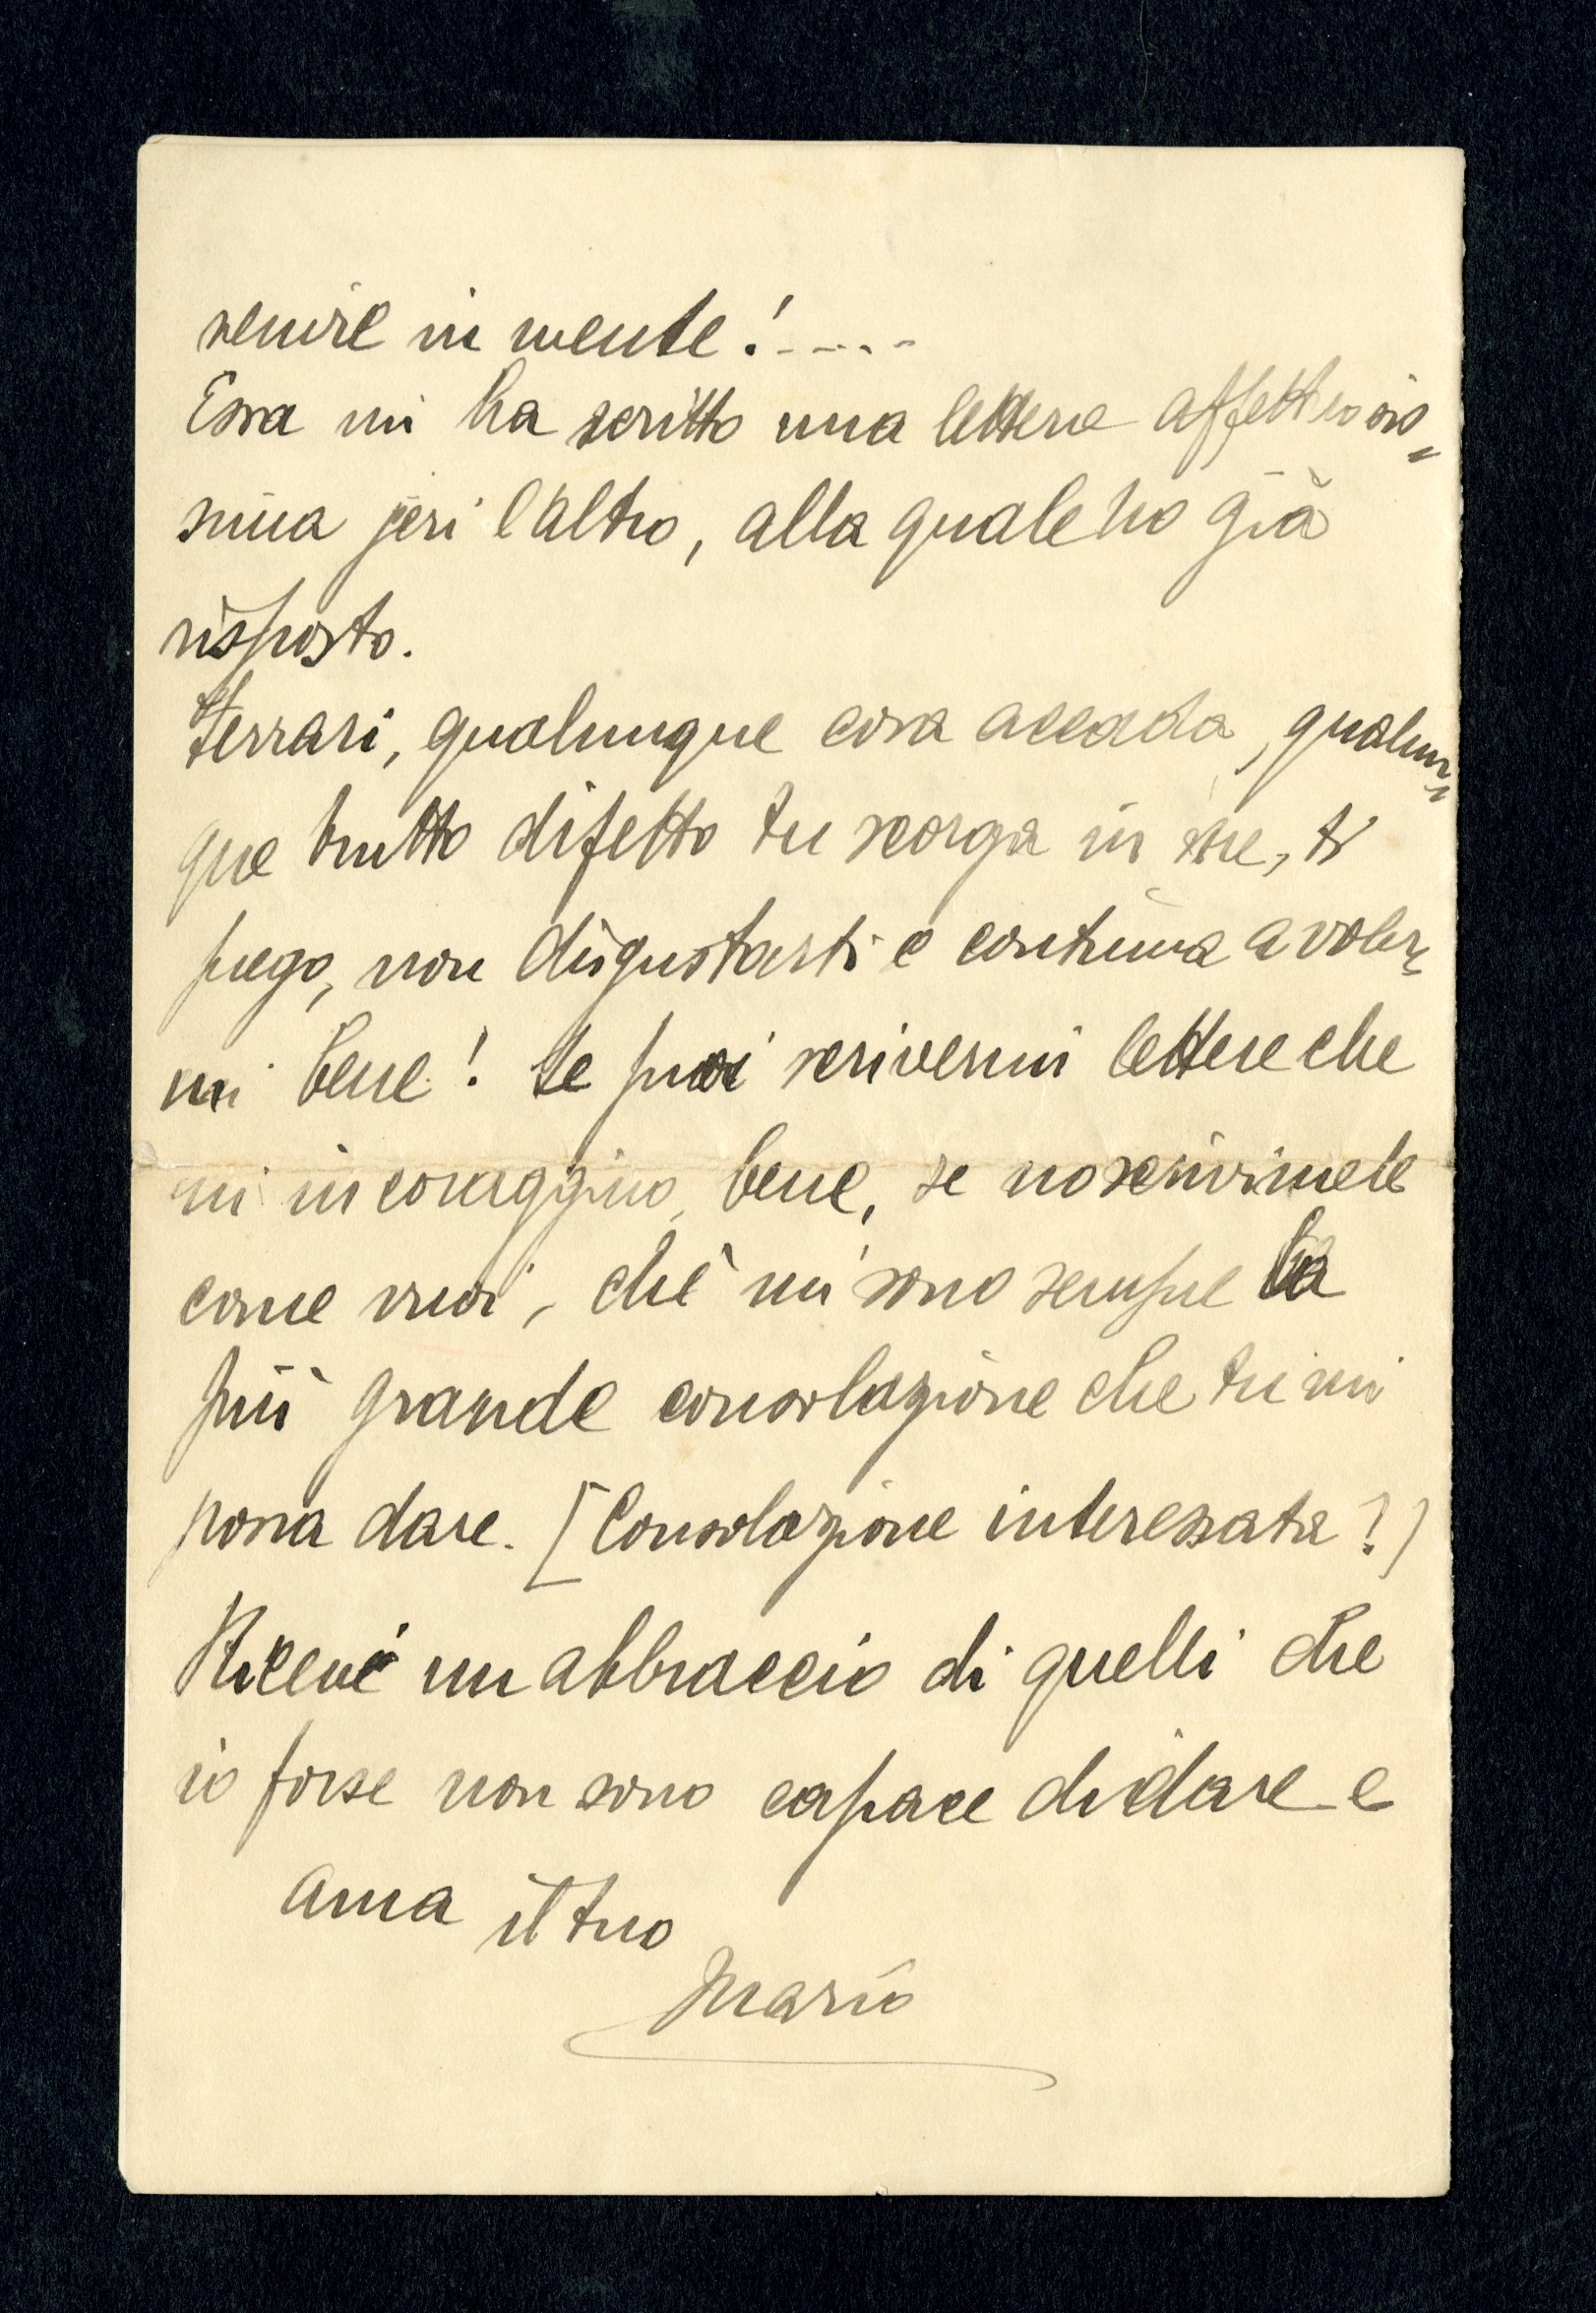 venire in mente!.....
Essa mi ha scritto una lettera affettuosis=
sima jeri l'altro, alla quale ho già
risposto.
Ferrari, qualunque cosa accada, qualun=
que brutto difetto tu scorga in me, ti
prego, non disgustarti e continua a voler=
mi bene! Se puoi scrivermi lettere che
mi incoraggino, bene, se no scrivimele
come vuoi, chè mi sono sempre la
più grande consolazione che tu mi
possa dare. [Consolazione interessata?)
Ricevi un abbraccio di quelli che
io forse non sono capace di dare e
ama il tuo
Mario